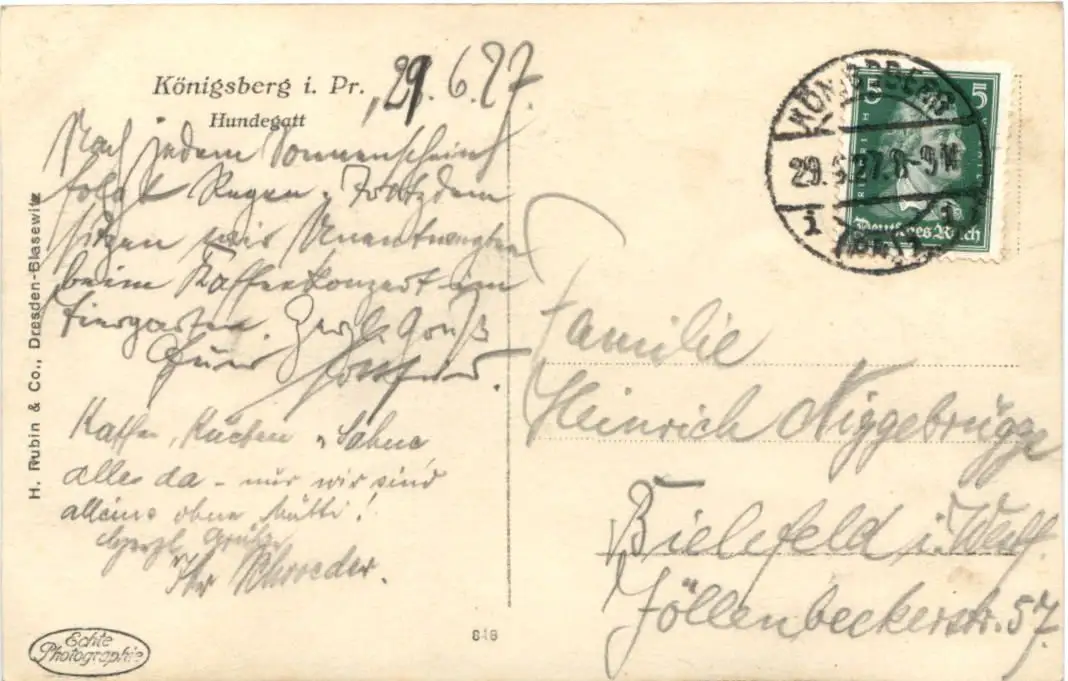 Königsberg i. Pr., 29.6.27.
Hundegatt
Nach jedem Sonnenschein
folgt Regen, Trotzdem
sitzen wir Unentwegten
beim Kaffeekonzert im
Tiergarten. Herzl. Gruß
Euer
Kaffee, Kuchen, Sahne
alles da - nur wir sind
alleine ohne Mutti!
Herzl. Grüße
Ihr Schroeder.
H. Rubin & Co., Dresden-Blasewitz
Echte
Photographie
818
KÖNIGSBERG
29.6.27. 8-9 N
i
(PR) 1
5 5
Deutsches Reich
Familie
Heinrich Niggebrügge
Bielefeld i. Westf.
Jöllenbeckerstr. 57.